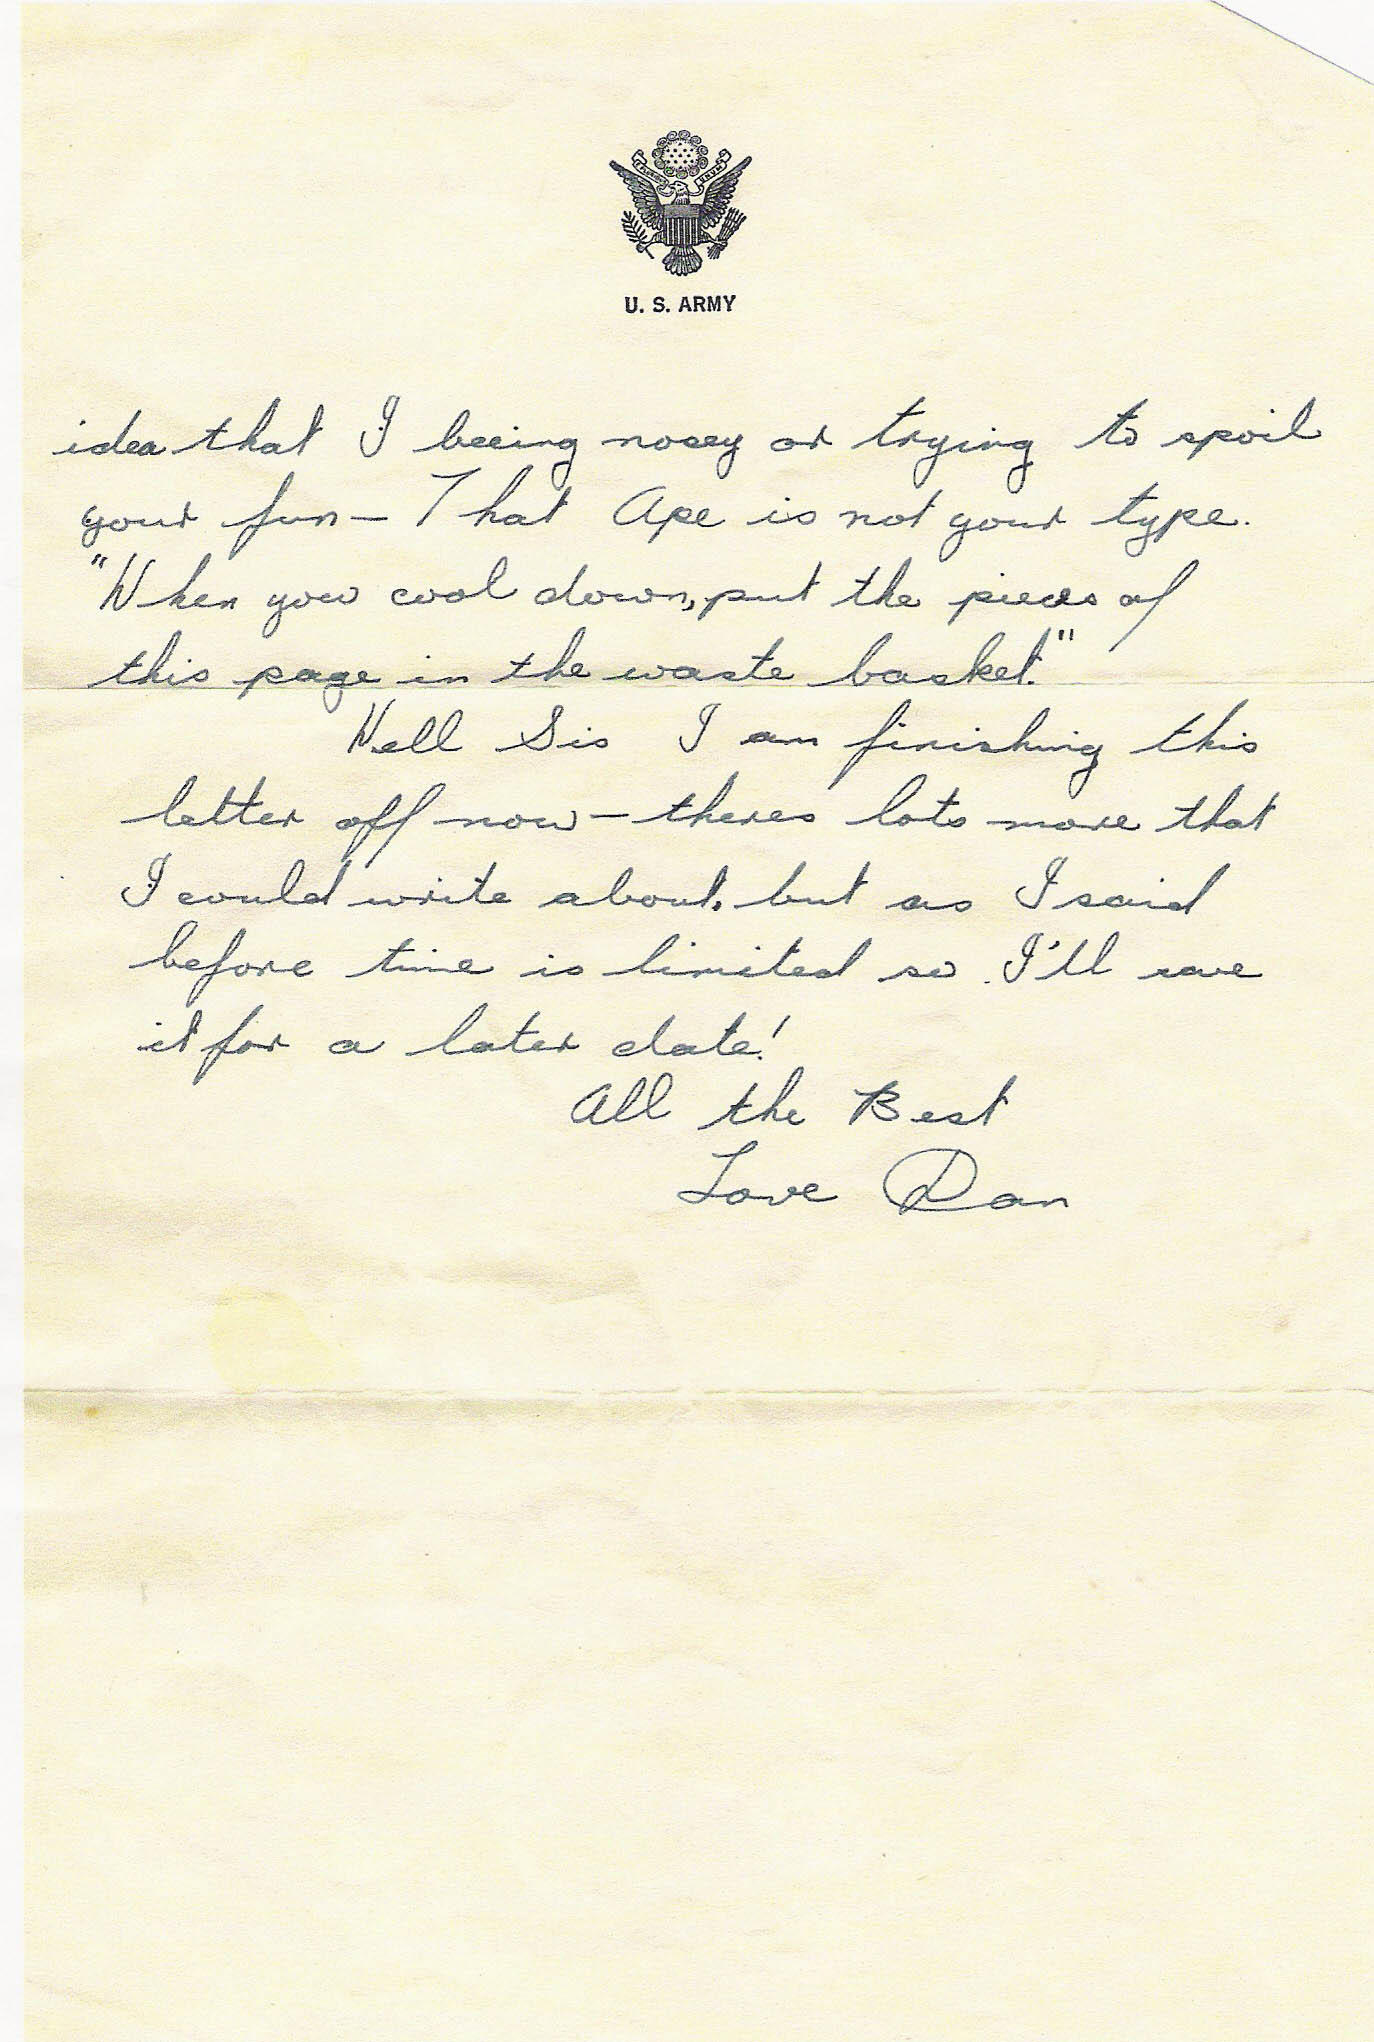 U. S. ARMY
idea that I beeing nosey or trying to spoil
your fun - That Ape is not your type.
"When you cool down, put the pieces of
this page in the waste basket."
Well Sis I am finishing this
letter off now - theres lots more that
I could write about, but as I said
before time is limited so I'll save
it for a later date!
All the Best
Love Dan